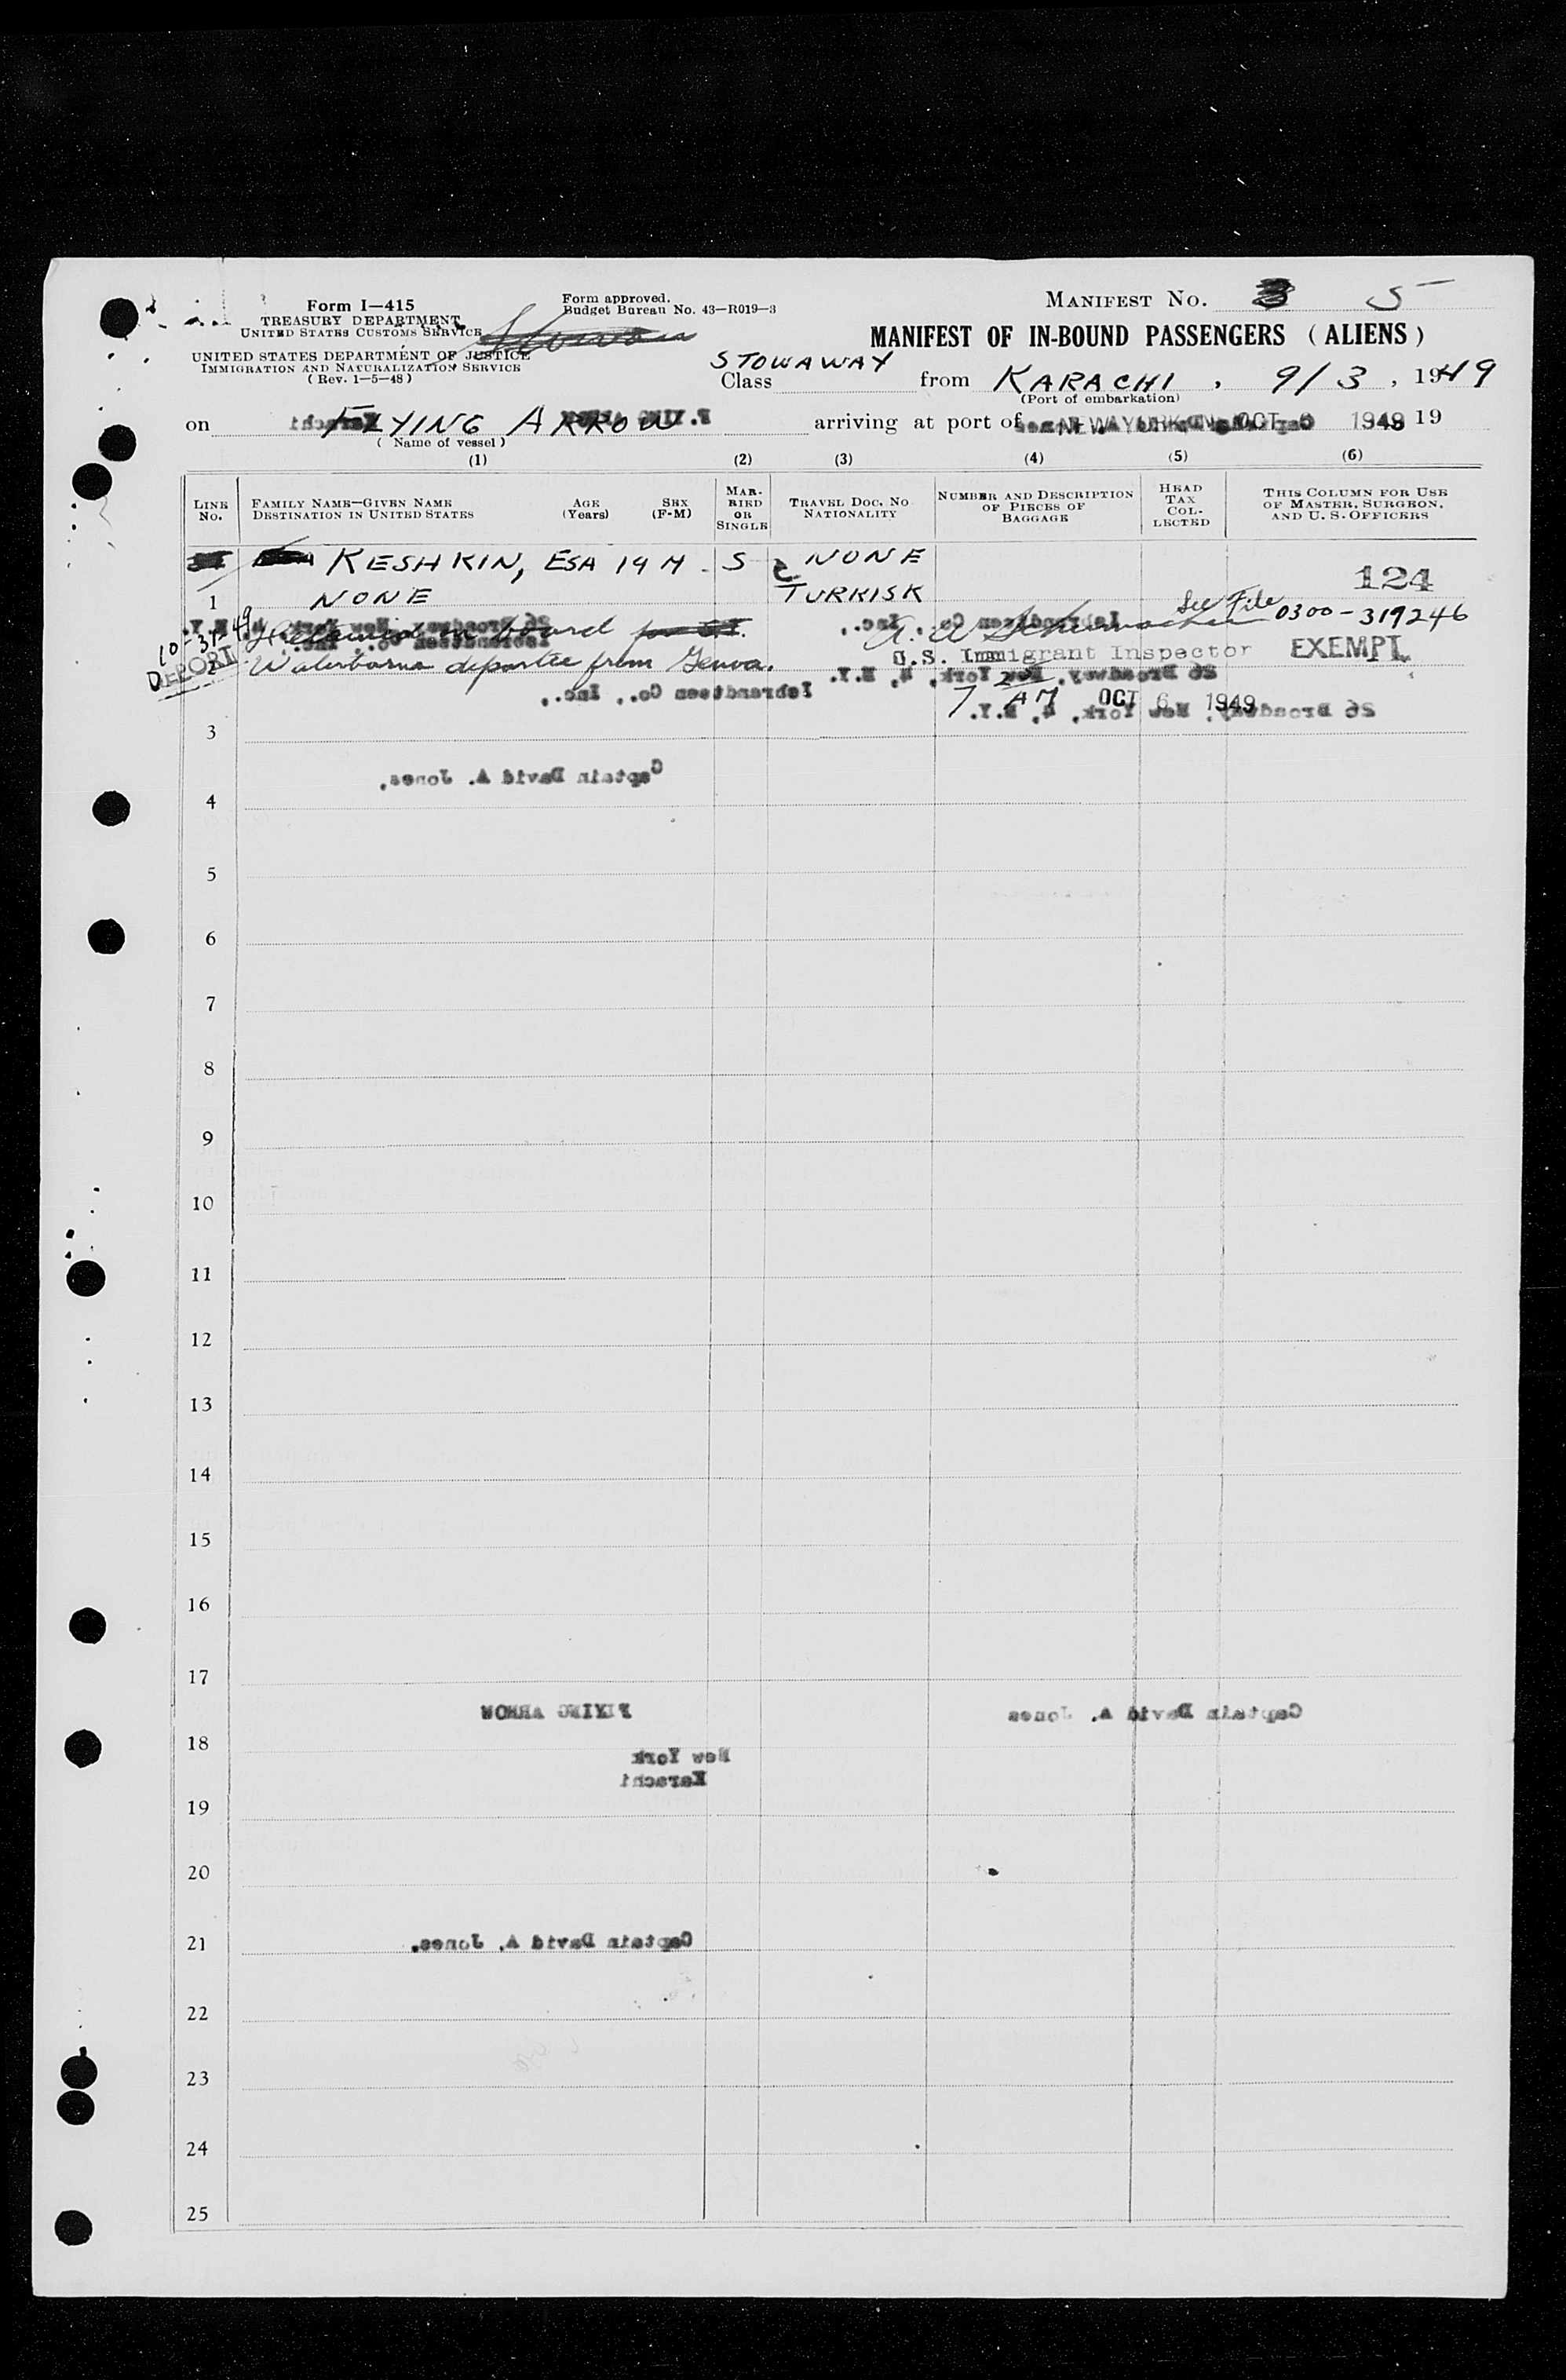 Form I—415
TREASURY DEPARTMENT
UNITED STATES CUSTOMS SERVICE
UNITED STATES DEPARTMENT OF JUSTICE
IMMIGRATION AND NATURALIZATION SERVICE
( Rev. 1-5-48 )
Form approved.
Budget Bureau No. 43—R019—3
MANIFEST NO. 3 5
MANIFEST OF IN-BOUND PASSENGERS (ALIENS)
STOWAWAY
Class from KARACHI, 9/3, 1949
(Port of embarkation)
on FLYING ARROW arriving at port of NEW YORK OCT 6 1949 19
( Name of vessel )
(1) (2) (3) (4) (5) (6)
LINE No. FAMILY NAME—GIVEN NAME DESTINATION IN UNITED STATES AGE (Years) SEX (F-M) MARRIED OR SINGLE TRAVEL DOC. NO NATIONALITY NUMBER AND DESCRIPTION OF PIECES OF BAGGAGE HEAD TAX COLLECTED THIS COLUMN FOR USE OF MASTER, SURGEON, AND U. S. OFFICERS
KESHKIN, ESA 19 M S NONE
124
1 NONE TURKISK
See File 0300-319246
10-31-49 Detained on board
U.S. Immigrant Inspector EXEMPT
2 from Genoa.
26 Broadway, New York, 4, N.Y.
Isbrandtsen Co., Inc.,
7 AM OCT 6 1949
26 Broadway, New York, 4, N.Y.
3
Captain David A. Jones,
4
5
6
7
8
9
10
11
12
13
14
15
16
17
FLYING ARROW Captain David A. Jones
18
New York
Karachi
19
20
21 Captain David A. Jones.
22
23
24
25